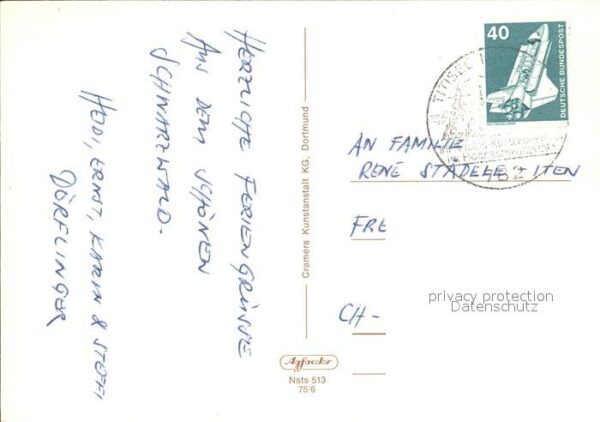 HERZLICHE FERIENGRÜSSE
AUS DEM SCHÖNEN
SCHWARZWALD.
HEIDI, ERNST, KARIN & STEFFI
DÖRFLINGER
Cramers Kunstanstalt KG, Dortmund
Agfacolor
Nsts 513
75/6
40
DEUTSCHE BUNDESPOST
TITISEE
AN FAMILIE
RENÉ STADELE ITEN
FRE
CH-
privacy protection
Datenschutz